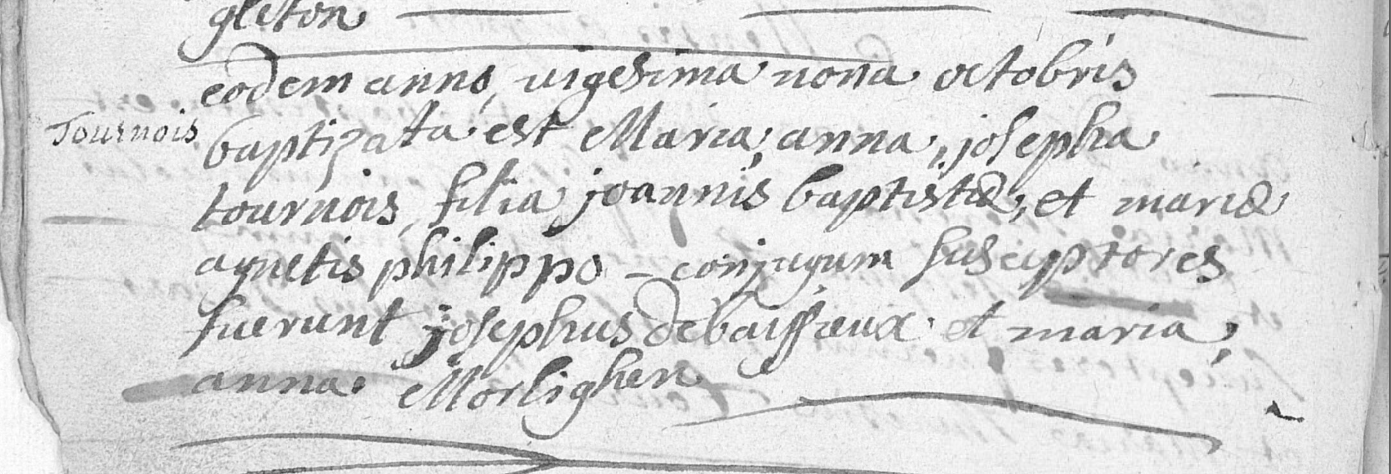 gleton
eodem anno, vigesima nona octobris
Tournois
baptizata est Maria, anna, josepha
tournois, filia joannis baptistæ, et mariæ
agnetis philippo – conjugum susceptores
fuerunt josephus debaisseux et maria,
anna Morlighen